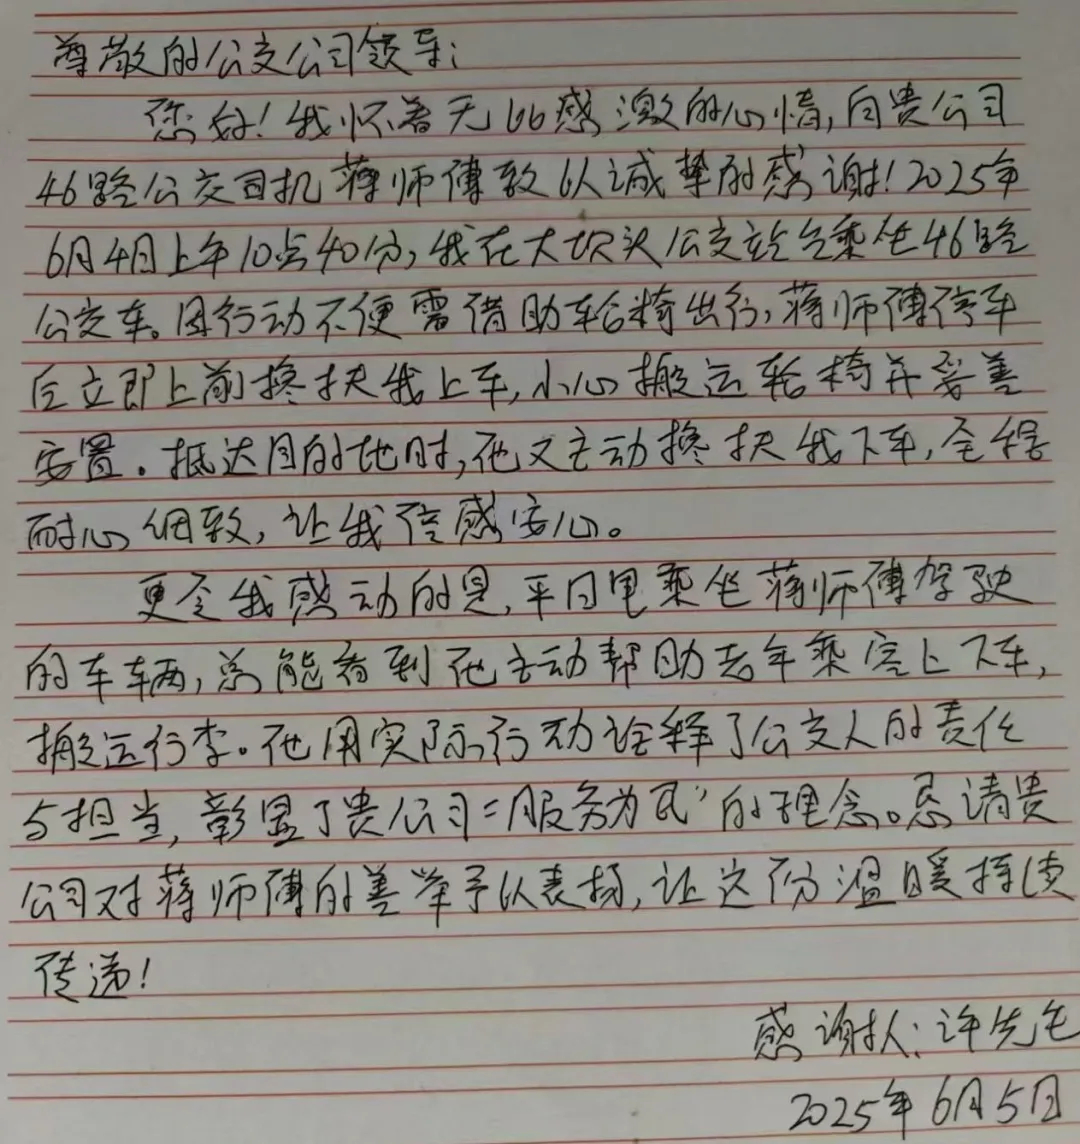 尊敬的公交公司领导：
您好！我怀着无比感激的心情，向贵公司
46路公交司机蒋师傅致以诚挚的感谢！2025年
6月4日上午10点40分，我在大坝头公交站台乘坐46路
公交车。因行动不便需借助轮椅出行，蒋师傅停车
后立即上前搀扶我上车，小心搬运轮椅并妥善
安置。抵达目的地时，他又主动搀扶我下车，全程
耐心细致，让我倍感安心。
更令我感动的是，平日里乘坐蒋师傅驾驶
的车辆，总能看到他主动帮助老年乘客上下车，
搬运行李。他用实际行动诠释了公交人的责任
与担当，彰显了贵公司“服务为民”的理念。恳请贵
公司对蒋师傅的善举予以表扬，让这份温暖持续
传递！
感谢人：许先生
2025年6月5日